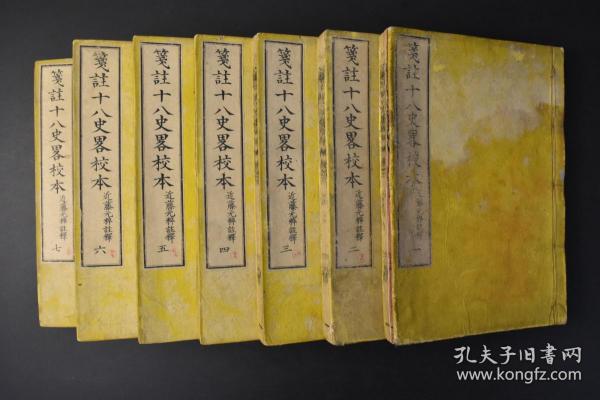 箋註十八史畧校本 近藤元粹註釋 一
箋註十八史畧校本 近藤元粹註釋 二
箋註十八史畧校本 近藤元粹註釋 三
箋註十八史畧校本 近藤元粹註釋 四
箋註十八史畧校本 近藤元粹註釋 五
箋註十八史畧校本 近藤元粹註釋 六
箋註十八史畧校本 近藤元粹註釋 七
孔夫子旧书网
www.kongfz.com